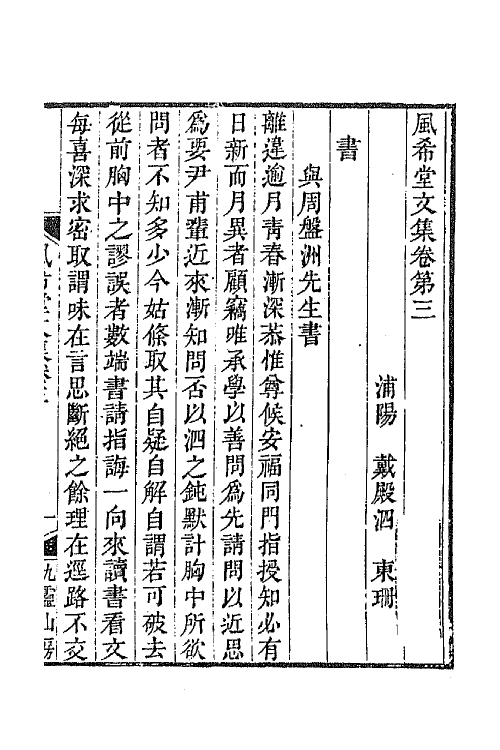 風希堂文集卷第三
浦陽　戴殿泗　東珊
書
與周盤洲先生書
離違逾月靑春漸深恭惟尊候安福同門指授知必有
日新而月異者顧竊唯承學以善問爲先請問以近思
爲要尹甫輩近來漸知問否以泗之鈍默計胸中所欲
問者不知多少今姑條取其自疑自解自謂若可破去
從前胸中之謬誤者數端書請指誨一向來讀書看文
每喜深求密取謂味在言思斷絕之餘理在逕路不交
一
九靈山房